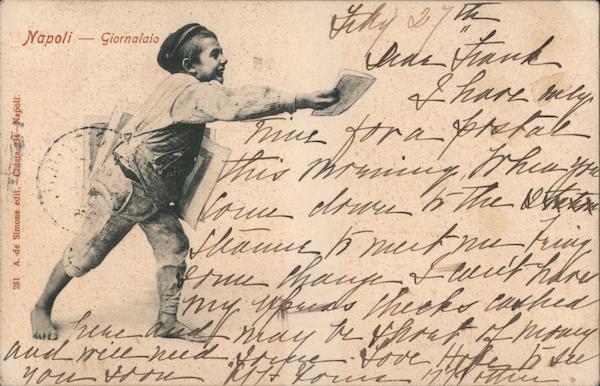 Napoli — Giornalaio
Feby 27th
Dear Frank
I have only
time for a postal
this morning. When you
come down to the
steamer to meet me bring
some change I can't have
my checks cashed
here and may be short of money
and will need some Love Hope to see
you soon Mother
281 A. de Simone edit. — Chiaia — Napoli.